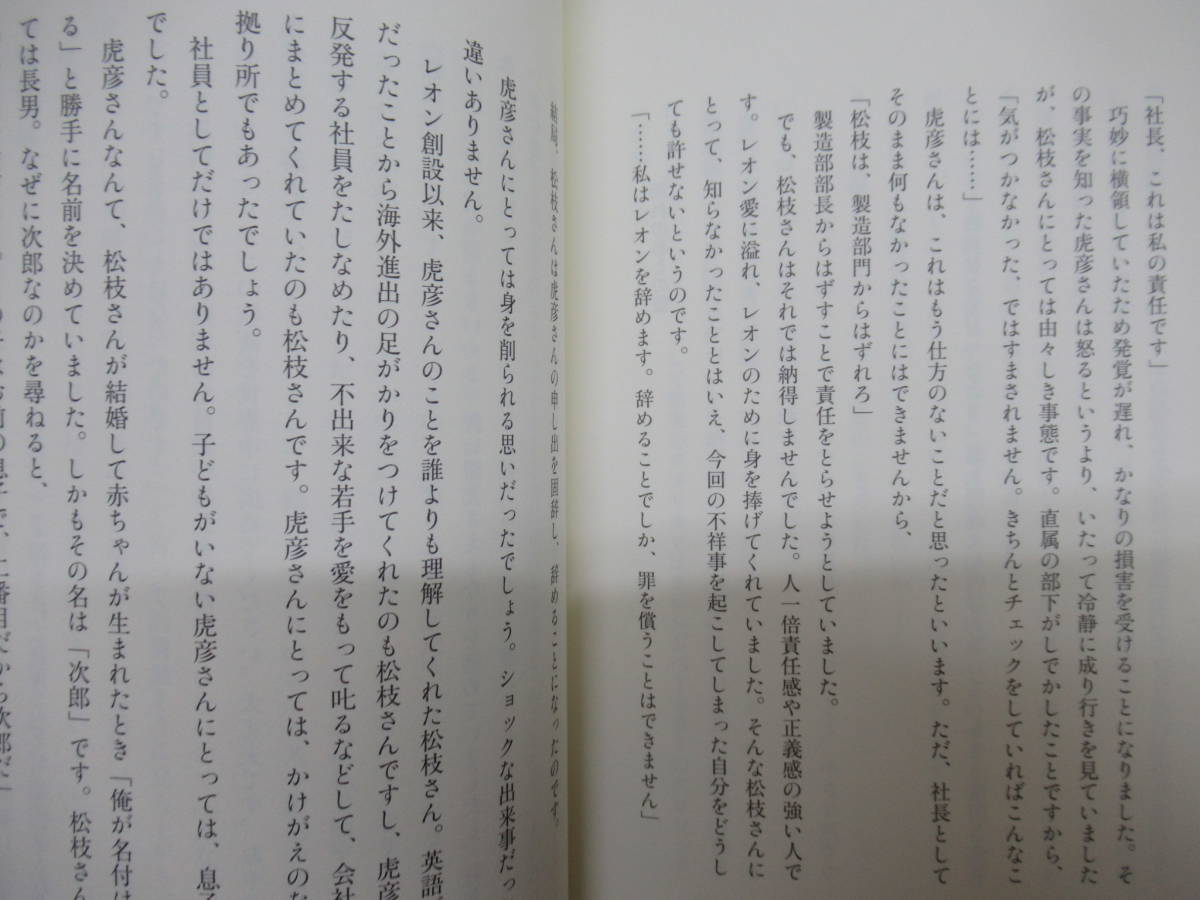 「社長、これは私の責任です」
巧妙に横領していたため発覚が遅れ、かなりの損害を受けることになりました。そ
の事実を知った虎彦さんは怒るというより、いたって冷静に成り行きを見ていました
が、松枝さんにとっては由々しき事態です。直属の部下がしでかしたことですから、
「気がつかなかった、ではすまされません。きちんとチェックをしていればこんなこ
とには……」
虎彦さんは、これはもう仕方のないことだと思ったといいます。ただ、社長として
そのまま何もなかったことにはできませんから、
「松枝は、製造部門からはずれろ」
製造部部長からはずすことで責任をとらせようとしていました。
でも、松枝さんはそれでは納得しませんでした。人一倍責任感や正義感の強い人で
す。レオン愛に溢れ、レオンのために身を捧げてくれていました。そんな松枝さんに
とって、知らなかったこととはいえ、今回の不祥事を起こしてしまった自分をどうし
ても許せないというのです。
「……私はレオンを辞めます。辞めることでしか、罪を償うことはできません」
結局、松枝さんは虎彦さんの申し出を固辞し、辞めることになったのです。
虎彦さんにとっては身を削られる思いだったでしょう。ショックな出来事だっ
違いありません。
レオン創設以来、虎彦さんのことを誰よりも理解してくれた松枝さん。英語
だったことから海外進出の足がかりをつけてくれたのも松枝さんですし、虎彦
反発する社員をたしなめたり、不出来な若手を愛をもって叱るなどして、会社
にまとめてくれていたのも松枝さんです。虎彦さんにとっては、かけがえのな
拠り所でもあったでしょう。
社員としてだけではありません。子どもがいない虎彦さんにとっては、息子
でした。
虎彦さんなんて、松枝さんが結婚して赤ちゃんが生まれたとき「俺が名付け
る」と勝手に名前を決めていました。しかもその名は「次郎」です。松枝さん
ては長男。なぜに次郎なのかを尋ねると、
前の息子で、二番目だから次郎だ」